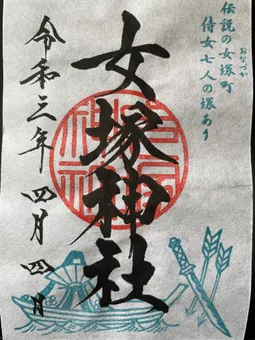 伝説の女塚町
おなづか
侍女七人の塚あり
女塚神社
令和三年 四月 四日